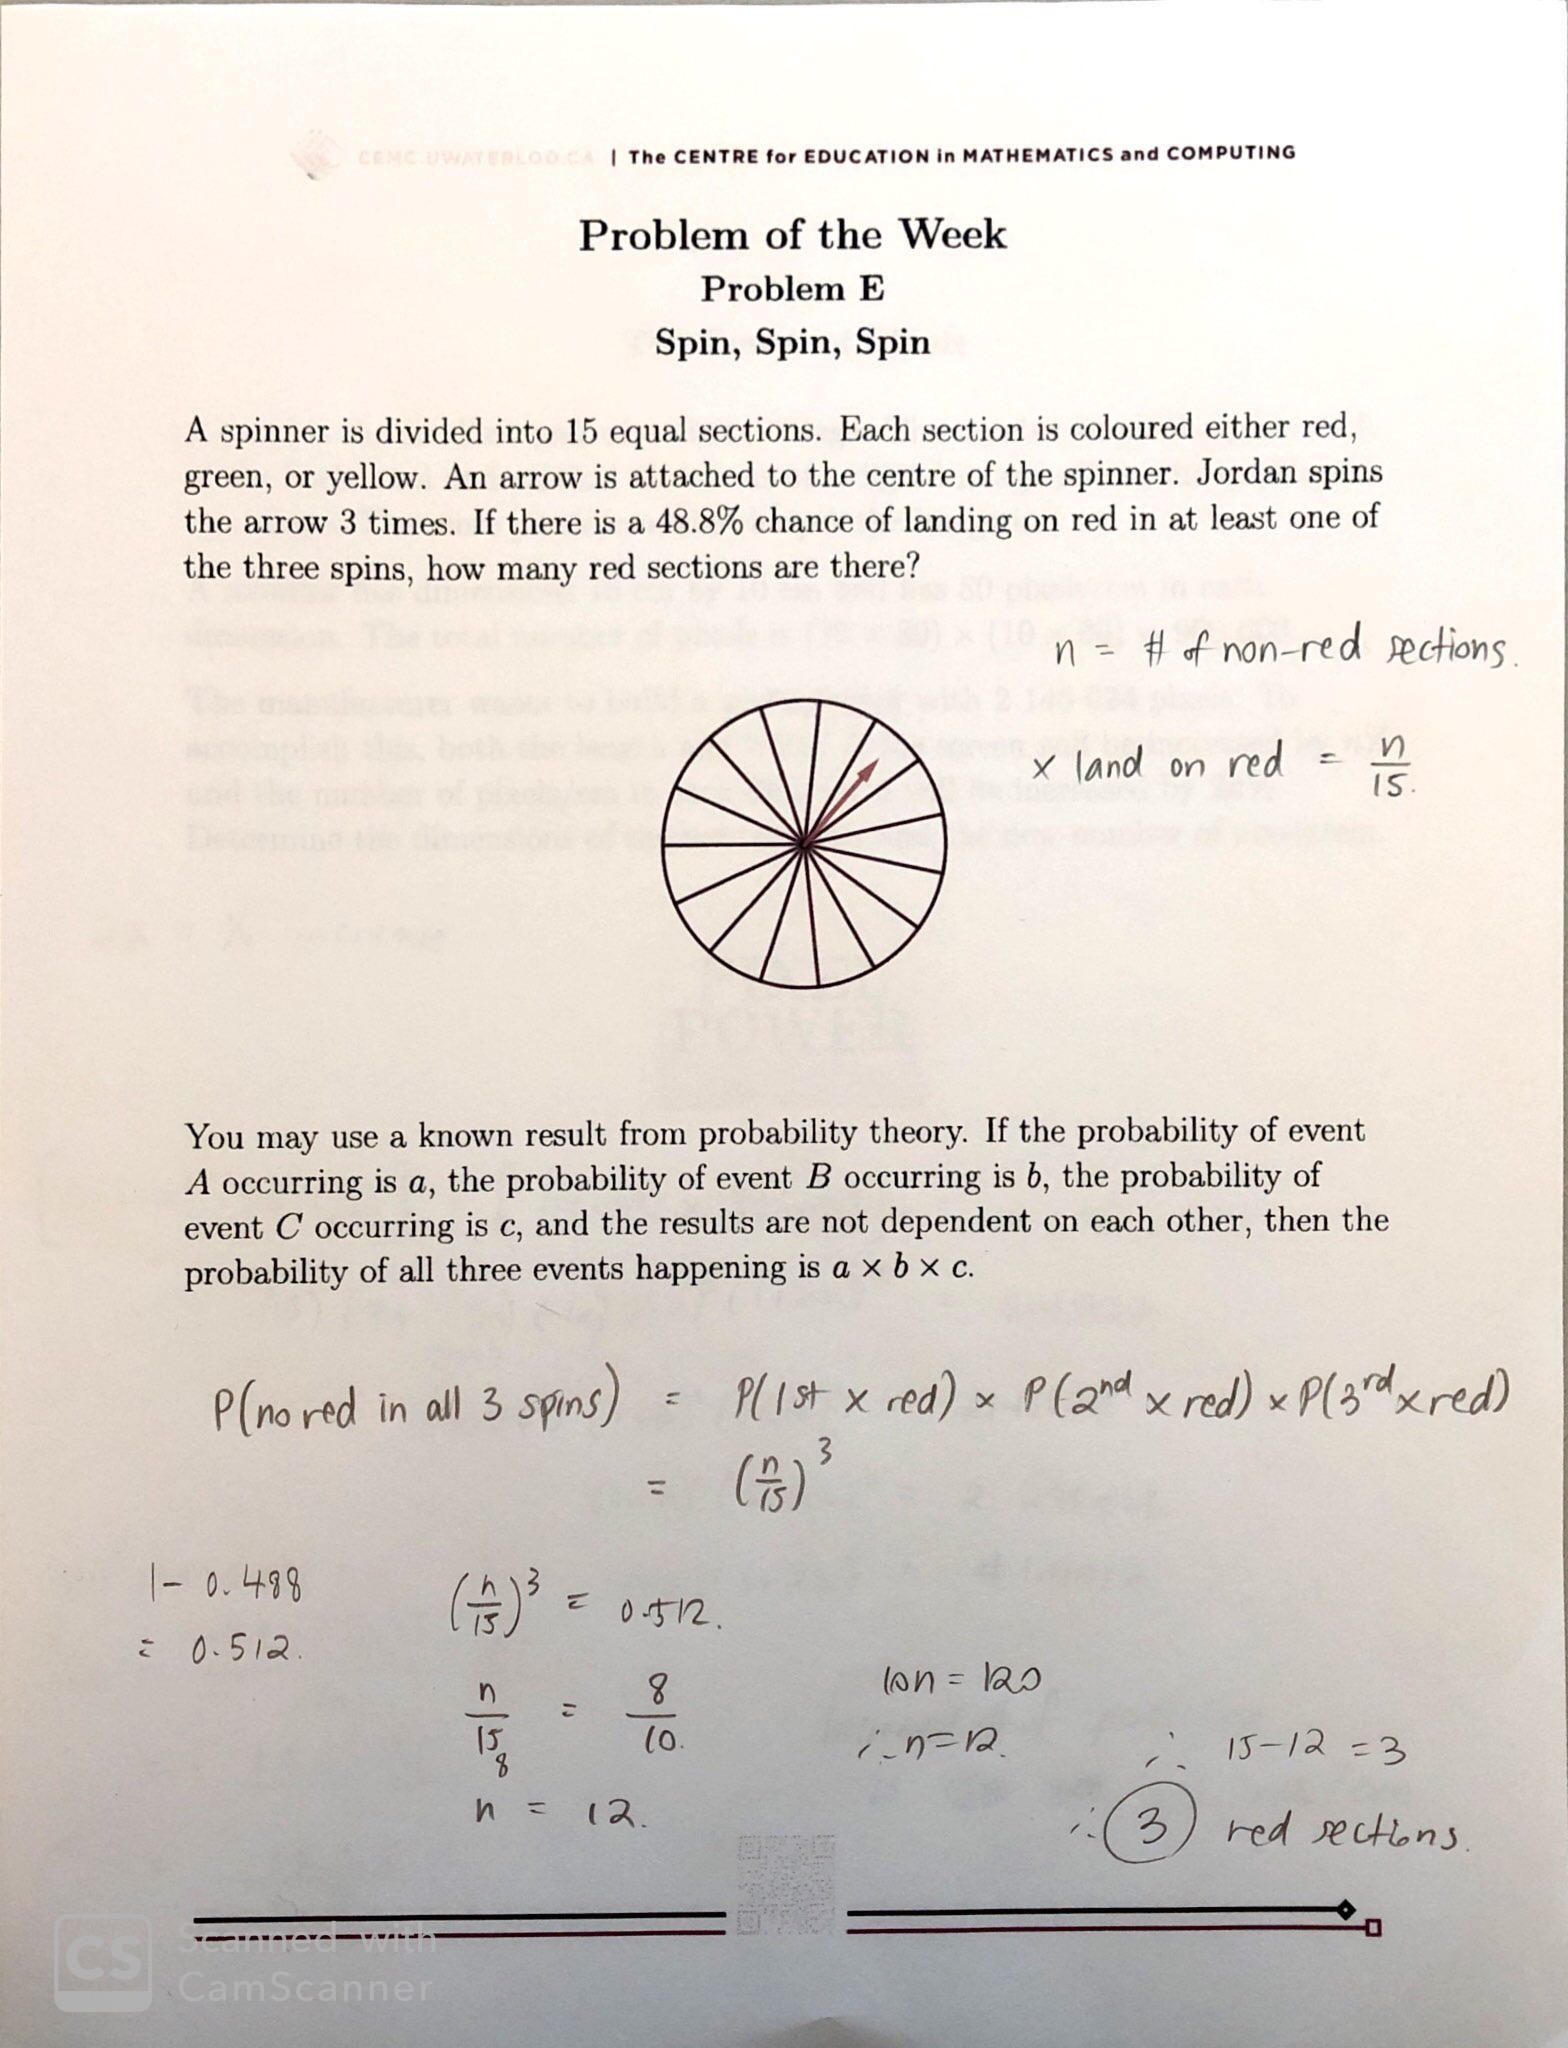 CEMC.UWATERLOO.CA | The CENTRE for EDUCATION in MATHEMATICS and COMPUTING
Problem of the Week
Problem E
Spin, Spin, Spin
A spinner is divided into 15 equal sections. Each section is coloured either red,
green, or yellow. An arrow is attached to the centre of the spinner. Jordan spins
the arrow 3 times. If there is a 48.8% chance of landing on red in at least one of
the three spins, how many red sections are there?
n = # of non-red sections.
x land on red = n/15.
You may use a known result from probability theory. If the probability of event
A occurring is a, the probability of event B occurring is b, the probability of
event C occurring is c, and the results are not dependent on each other, then the
probability of all three events happening is a × b × c.
P(no red in all 3 spins) = P(1st x red) × P(2nd x red) × P(3rd x red)
= (n/15)³
1 - 0.488
= 0.512.
(n/15)³ = 0.512.
n/15 = 8/10.
8
n = 12.
10n = 120
∴ n = 12.
∴ 15-12 = 3
∴ 3 red sections.
CS Scanned with
CamScanner